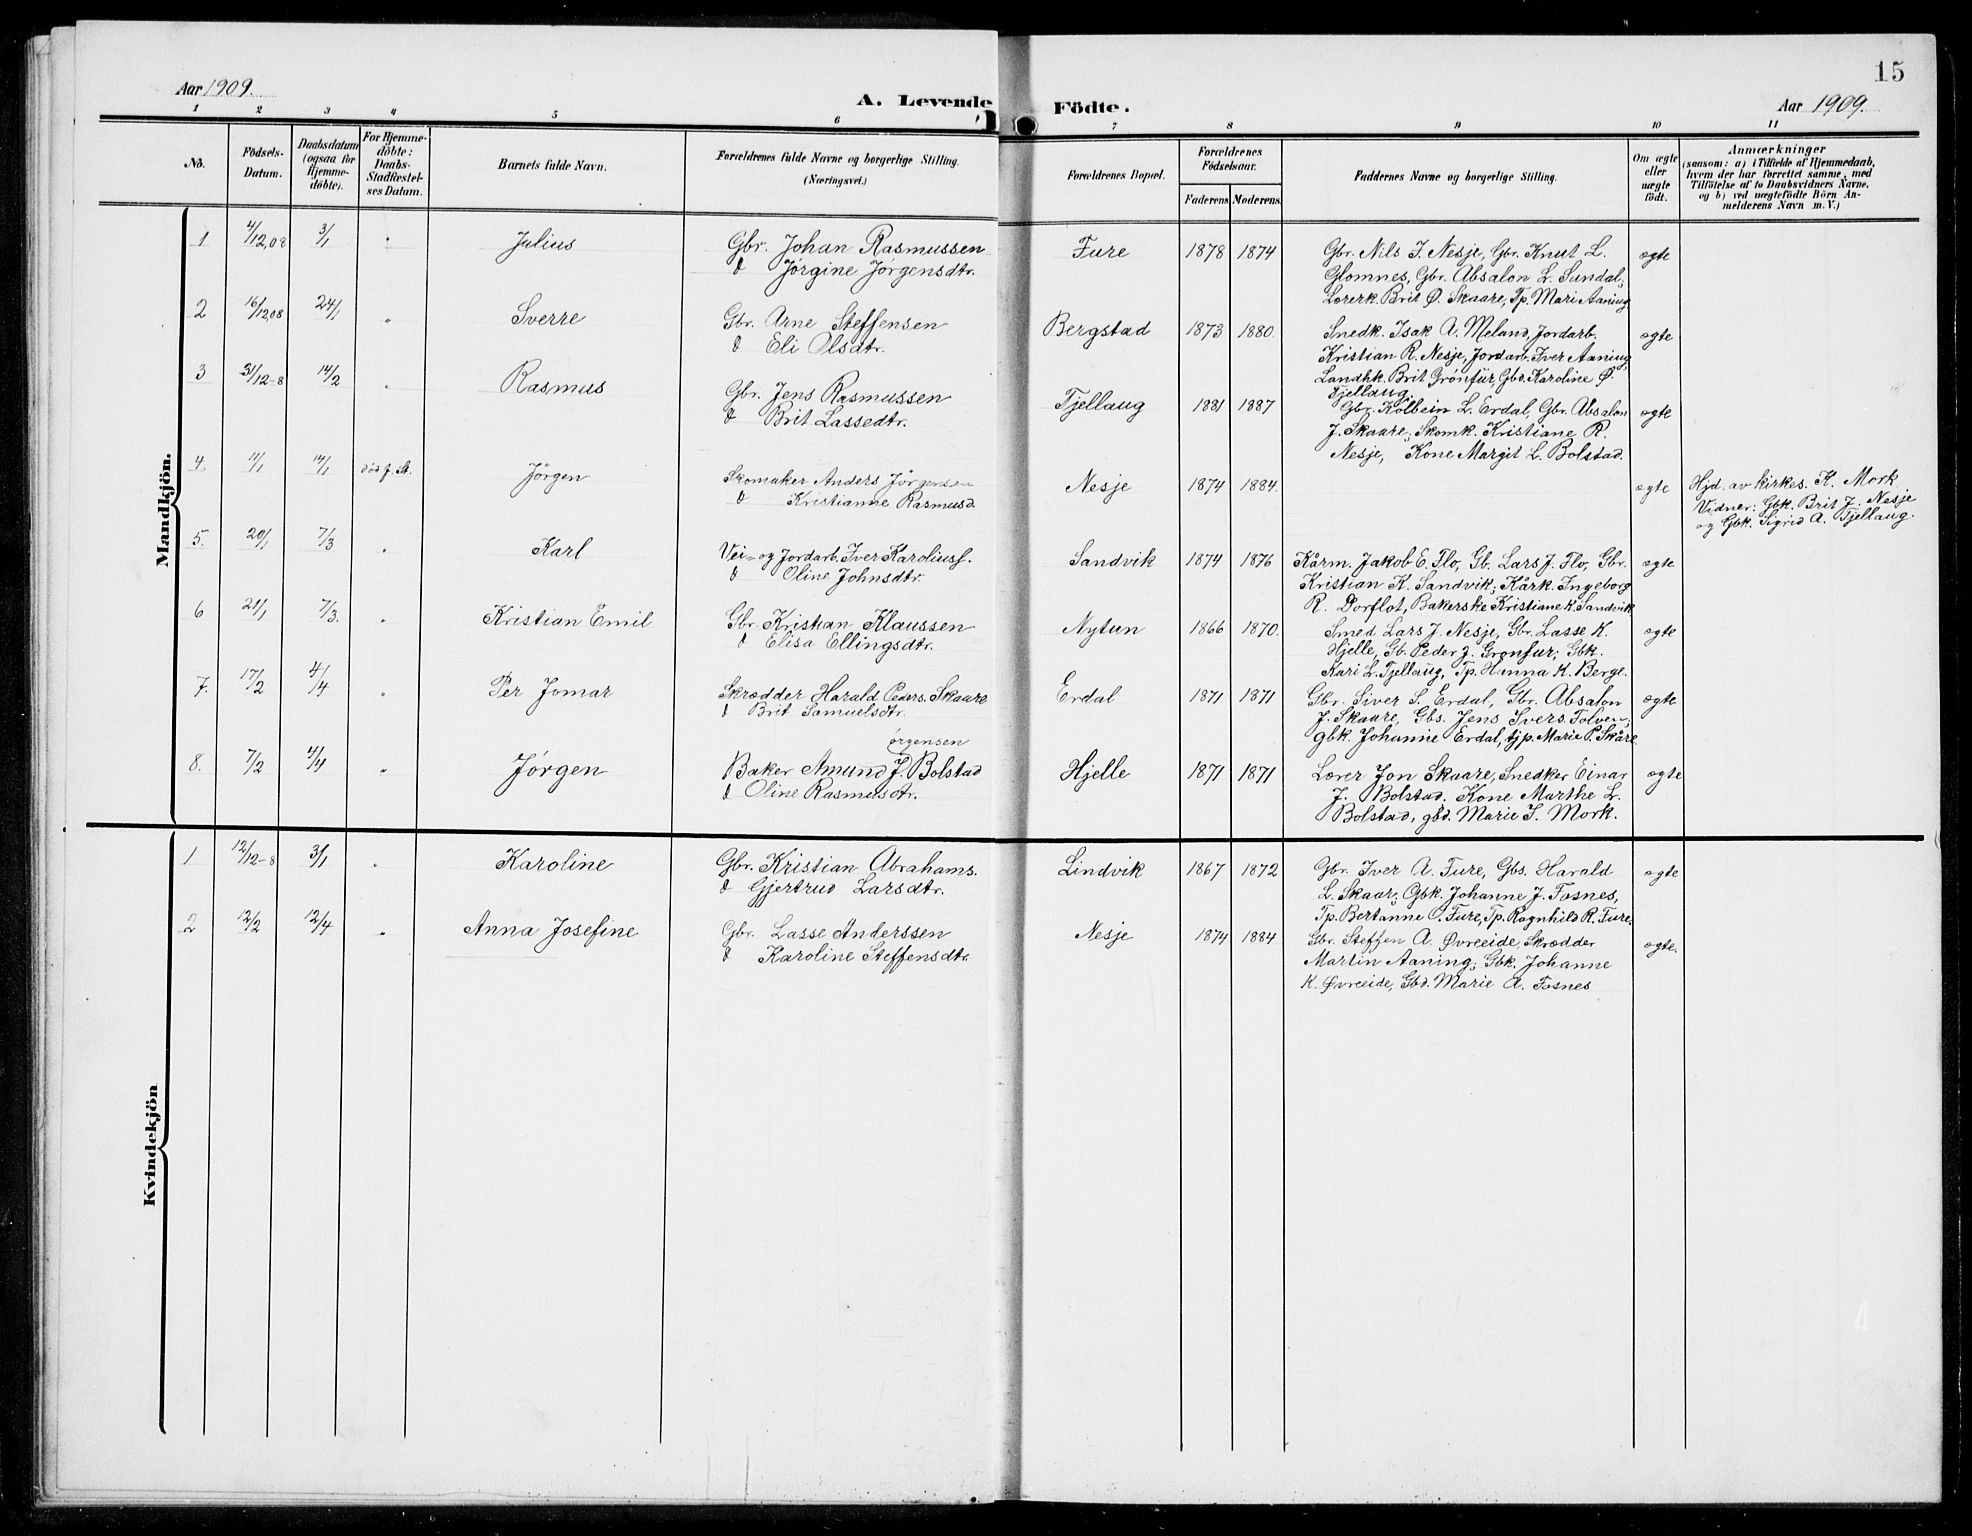 15
Aar 1909.
A. Levende Födte.
Aar 1909.
1 2 3 4 5 6 7 8 9 10 11
No.
Födsels-Datum.
Daabsdatum (ogsaa for Hjemmedöbte).
For Hjemmedöbte: Daabs-Stadfæstelses Datum.
Barnets fulde Navn.
Forældrenes fulde Navne og borgerlige Stilling. (Næringsvei.)
Forældrenes Bopæl.
Forældrenes Födselsaar.
Faderens Moderens.
Faddernes Navne og borgerlige Stilling.
Om ægte eller uægte født.
Anmærkninger
(saasom: a) i Tilfælde af Hjemmedaab,
hvem der har forrettet samme, med
Tilföielse af to Daabsvidners Navne.
og b) ved uægtefödte Börn An-
melderens Navn m. V.)
Mandkjön.
1 4/12,08 3/1 " Julius Gbr. Johan Rasmussen Fure 1878 1874 Gbr. Nils J. Nesje, Gbr. Knut L. ægte
& Jörgine Jörgensdtr. Glomnes, Gbr. Absalon L. Sundal,
Lærerk. Brit Ø. Skaare, Tp. Mari Aaning
2 16/12 08 24/1 " Sverre Gbr. Arne Steffensen Bergstad 1873 1880. Snedk. Isak A. Meland, Jordarb. ægte
& Eli Olsdtr. Kristian R. Nesje, Jordarb. Iver Aaning,
Landhk. Brit Grönfur, Gbd. Karoline Ø.
Tjellaug.
3 31/12-8 14/2 " Rasmus Gbr. Jens Rasmussen Tjellaug 1881 1887 Gbr. Kolbein L. Erdal, Gbr. Absalon ægte
& Brit Lassedtr. J. Skaare, Skomk. Kristiane R.
Nesje, Kone Margit L. Bolstad.
4. 11/1 14/1 död f. St. Jörgen Skomaker Anders Jörgensen Nesje 1874 1884. ægte Hjd. av kirkes. K. Mork
& Kristianne Rasmusd. Vidner: Gbk. Brit J. Nesje
og Gbk. Sigrid A. Tjellaug.
5. 20/1 7/3 " Karl Vei- og Jordarb. Iver Karoliusf. Sandvik 1874 1876 Kårm. Jakob E. Flo, Gb. Lars J. Flo, Gbr. ægte
& Oline Johnsdtr. Kristian K. Sandvik, Kårk. Ingeborg
R. Dorflot, Bakerske Kristiane K. Sandvik
6 21/1 7/3. " Kristian Emil Gbr. Kristian Klaussen Nytun 1866 1870. Smed Lars J. Nesje, Gbr. Lasse K. ægte
& Elisa Ellingsdtr. Hjelle, Gb. Peder J. Grønfur; Gbk.
Kari L. Tjellaug, Tp. Hanna K. Berge.
7. 17/2 4/4 " Per Jomar Skrædder Harald Peders. Skaare Erdal 1871 1871 Gbr. Siver S. Erdal, Gbr. Absalon ægte
& Brit Samuelsdtr. J. Skaare, Gbs. Jens Ivers. Tolven,
gbk. Johanne Erdal, tjp. Marie P. Skåre.
8. 7/2 4/4 " Jørgen Baker Amund J. Jørgensen Bolstad Hjelle 1871 1871 Lærer Jon Skaare, Snedker Einar ægte
& Oline Rasmusdtr. J. Bolstad. Kone Marthe L.
Bolstad, gbd. Marie I. Mork.
Kvindekjön
1 12/12-8 3/1 " Karoline Gbr. Kristian Abrahams. Lindvik 1867 1872 Gbr. Iver A. Fure, Gbs. Harald ægte
& Gjertrud Larsdtr. L. Skaar; Gbk Johanne J. Fosnes,
Tp. Bertanne O. Fure, Tp. Ragnhild R. Fure.
2 12/2 12/4 " Anna Josefine Gbr. Lasse Anderssen Nesje 1874 1884 Gbr. Steffen A. Øvreeide, Skrædder ægte.
& Karoline Steffensdtr. Martin Aaning; Gbk. Johanne
K. Øvreeide, Gbd. Marie A. Fosnes